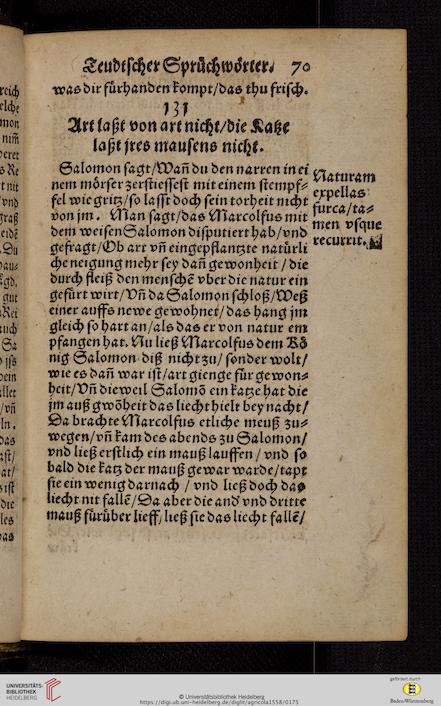 Teudtscher Sprüchwörter. 70
was dir fürhanden kompt/das thu frisch.
131
Art laßt von art nicht/die Katze
laßt jres mausens nicht.
Salomon sagt/Wañ du den narren in ei
nem mörser zerstiessest mit einem stempf-
fel wie gritz/so lasst doch sein torheit nicht
von jm. Man sagt/das Marcolfus mit
dem weisen Salomon disputiert hab/vnd
gefragt/Ob art vñ eingepflantzte natürli
che neigung mehr sey dañ gewonheit / die
durch fleiß den menschẽ vber die natur ein
gefürt wirt/Vñ da Salomon schloß/Weß
einer auffs newe gewohnet/das hang jm
gleich so hart an/als das er von natur em
pfangen hat. Nu ließ Marcolfus dem Kö
nig Salomon diß nicht zu/ sonder wolt/
wie es dañ war ist/art gienge für gewon-
heit/Vñ dieweil Salomõ ein katze hat die
jm auß gwõheit das liecht hielt bey nacht/
Da brachte Marcolfus etliche meuß zu-
wegen/vñ kam des abends zu Salomon/
vnd ließ erstlich ein mauß lauffen / vnd so
bald die katz der mauß gewar warde/tapt
sie ein wenig darnach / vnd ließ doch das
liecht nit fallẽ/Da aber die and' vnd dritte
mauß fürüber lieff/ ließ sie das liecht fallẽ/
Naturam
expellas
furca/ta-
men vsque
recurrit.
UNIVERSITÄTS-
BIBLIOTHEK
HEIDELBERG
© Universitätsbibliothek Heidelberg
https://digi.ub.uni-heidelberg.de/diglit/agricola1558/0175
gefördert durch
Baden-Württemberg